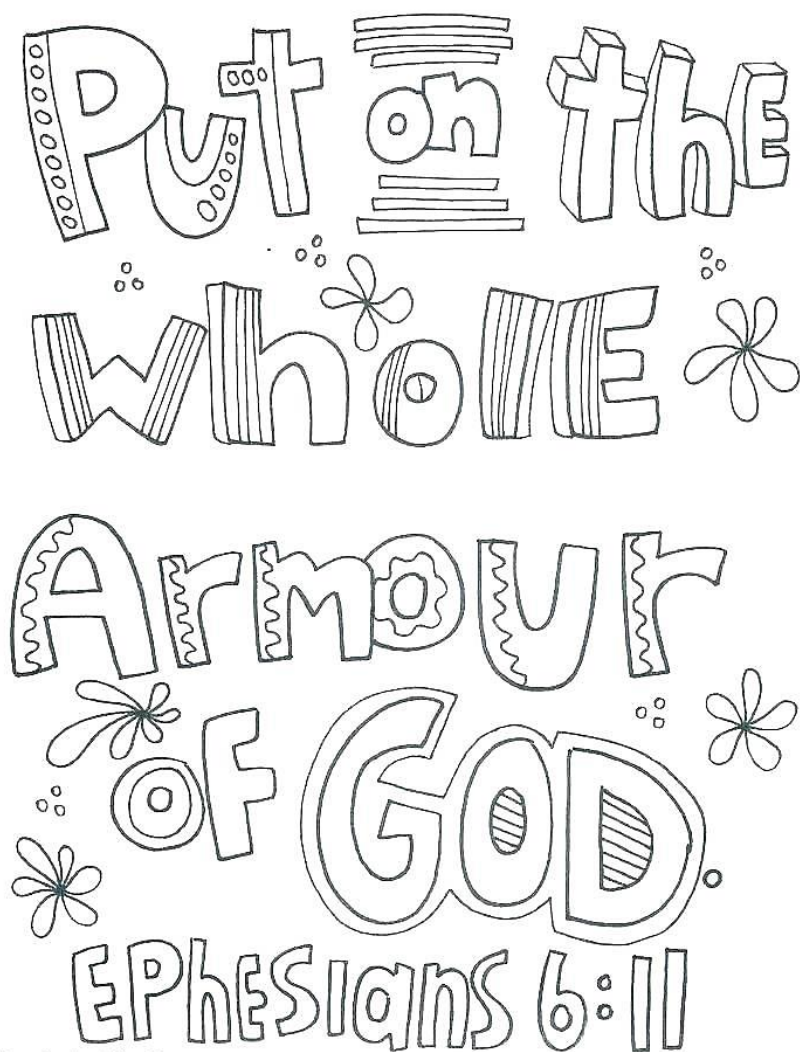 Put on the
whole
Armour
of GOD.
Ephesians 6:11